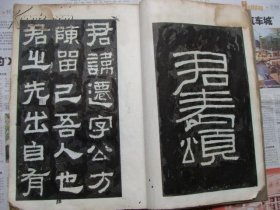 君表頌
君諱遷字公方
陳留己吾人也
君之先出自有
汽车城